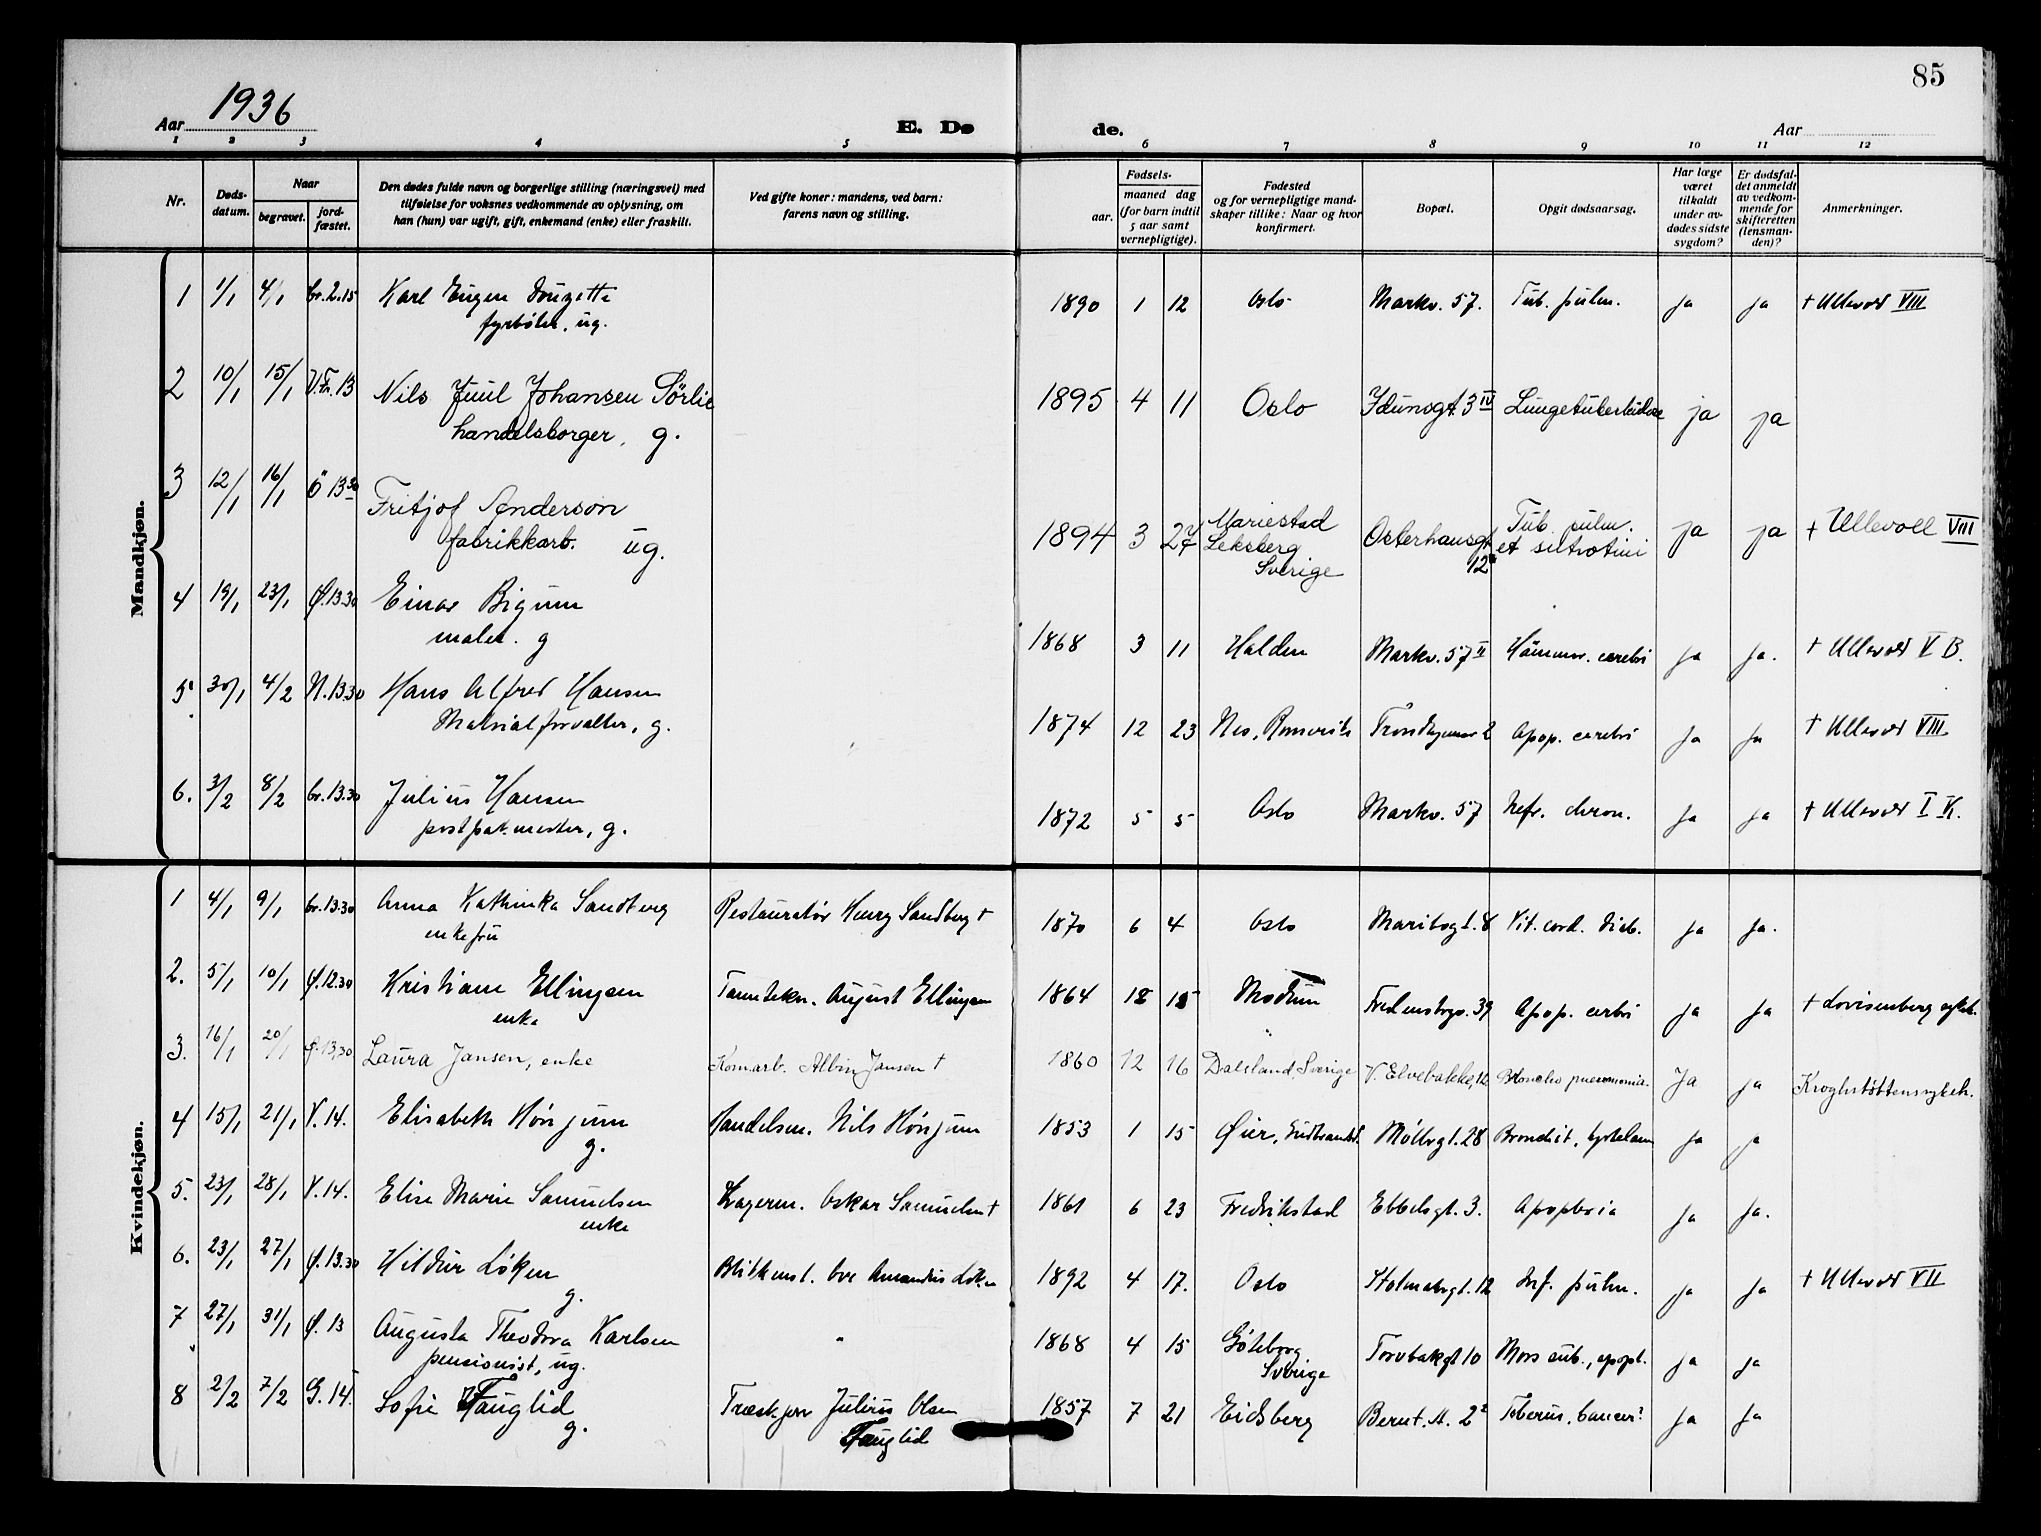 85
Aar 1936
E. Dø
de.
Aar
1 2 3 4 5 6 7 8 9 10 11 12
Nr.
Døds-
datum.
Naar
begravet.
jord-
fæstet.
Den dødes fulde navn og borgerlige stilling (næringsvei) med
tilføielse for voksnes vedkommende av oplysning, om
han (hun) var ugift, gift, enkemand (enke) eller fraskilt.
Ved gifte koner: mandens, ved barn:
farens navn og stilling.
Fødsels-
aar.
maaned dag
(for barn indtil
5 aar samt
vernepligtige).
Fødested
og for vernepligtige mand-
skaper tillike: Naar og hvor
konfirmert.
Bopæl.
Opgit dødsaarsag.
Har læge
været
tilkaldt
under av-
dødes sidste
sygdom?
Er dødsfal-
det anmeldt
av vedkom-
mende for
skifteretten
(lensman-
den)?
Anmerkninger.
Mandkjøn.
1 1/1 4/1 Gr. 2.15 Karl Eugen Donzette 1890 1 12 Oslo Markv. 57. Tub. pulm. ja ja + Ullevål VIII
fyrbøter, ug.
2 10/1 15/1 V.Fr. 13 Nils Juul Johansen Sörlie 1895 4 11 Oslo Idunsgt. 3 IV Lungetuberkulose ja ja
handelsborger, g.
3 12/1 16/1 Ö 13 30 Fritjof Anderson 1894 3 27 Mariestad
Leksberg
Sverige Osterhausgt
12 Tub. pulm.
et ja ja + Ullevoll VIII
fabrikkarb. ug.
4 19/1 23/1 Ø. 13.30 Einar Bigum 1868 3 11 Halden Markv. 57 II Hämmor. cerebri ja ja. + Ullevål V B.
maler. g
5 30/1 4/2 N. 13.30 Hans Alfred Hansen 1874 12 23 Nes, Romerike Trondhjemsv 2 Apop. cerebri ja ja + Ullevål VIII
Matrialforvalter, g.
6. 3/2 8/2 Gr. 13.30 Julius Hansen 1872 5 5 Oslo Markv. 57 Nefr. chron. ja ja + Ullevål I K.
postpakmester, g.
Kvindekjøn.
1 4/1 9/1 Gr. 13.30 Anna Kathinka Sandberg Restauratør Henry Sandberg + 1870 6 4 Oslo Maribogt. 8 Vit. cord. Diab. ja ja.
enkefru
2. 5/1 10/1 Ø. 12.30 Kristiane Ellingsen Tanntekn. August Ellingsen 1864 12 15 Modum Fredensborgv. 39 Apop. cerebri ja ja + Lovisenberg sykeh.
enke
3. 16/1 20/1 Ø. 13,30 Laura Jansen, enke Komarb. Albin Jansen + 1860 12 16 Dalsland, Sverige V. Elvebakke, 12 Broncho pneumonia. Ja ja Kroghstøttensykeh.
4 15/1 21/1 V. 14. Elisabeth Hönjum Handelsm. Nils Hönjum 1853 1 15 Øier, Gudbrandsd. Møllergt. 28 Bronchit, ja ja
g.
5. 23/1 28/1 V. 14. Elise Marie Samuelsen Lagerm. Oskar Samuelsen + 1861 6 23 Fredrikstad Ebbelsgt. 3. Apoplexia ja ja.
enke
6. 23/1 27/1 Ø. 13.30 Hildur Løken Blikkensl. Ove Amandus Løken 1892 4 17. Oslo Inf. pulm. ja ja + Ullevål VII
g.
7 27/1 31/1 Ø. 13 Augusta Theodora Karlsen " 1868 4 15 Göteborg
Sverige Torvbakgt 10 Mors sub., apopl. ja ja
pensionist, ug.
8 2/2 7/2 G. 14. Sofie Fauglid Træskjær Julius Olsen
Fauglid 1857 7 21 Eidsberg Bernt. A. 2 cancer? ja ja
g.